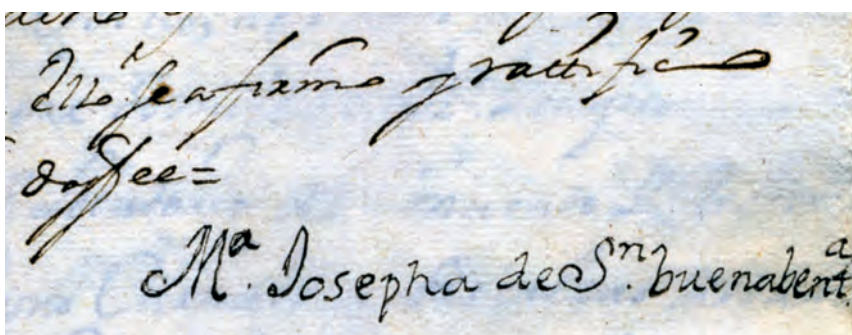 ello se afirmo y ratifico
doffee=
Mª. Josepha de Sⁿ. buenabentª.